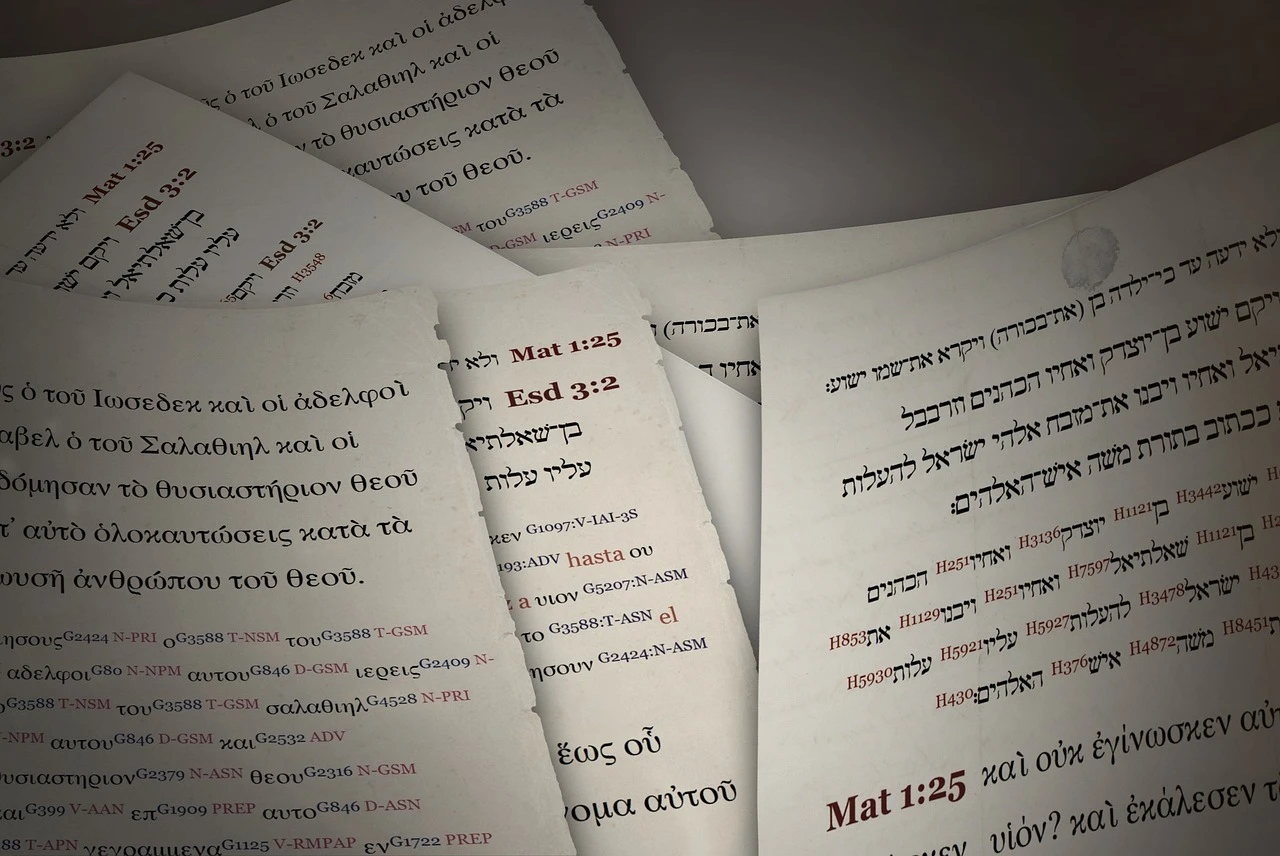 ὁ τοῦ Ιωσεδεκ καὶ οἱ
ὁ τοῦ Σαλαθιηλ καὶ οἱ
τὸ θυσιαστήριον θεοῦ
κατὰ τὰ
τοῦ θεοῦ.
τουG3588 T-GSM
D-GSM ιερειςG2409 N-
N-PRI
3:2
Mat 1:25 ולא ידעה עד
Esd 3:2 ויקם
בן־שאלתיאל
עליו עלות
Esd 3:2
H3548
ὁ τοῦ Ιωσεδεκ καὶ οἱ ἀδελφοὶ
ὁ τοῦ Σαλαθιηλ καὶ οἱ
τὸ θυσιαστήριον θεοῦ
αὐτὸ ὁλοκαυτώσεις κατὰ τὰ
ἀνθρώπου τοῦ θεοῦ.
G2424 N-PRI οG3588 T-NSM τουG3588 T-GSM
αδελφοιG80 N-NPM αυτουG846 D-GSM ιερειςG2409 N-
G3588 T-NSM τουG3588 T-GSM σαλαθιηλG4528 N-PRI
-NPM αυτουG846 D-GSM καιG2532 ADV
G2379 N-ASN θεουG2316 N-GSM
G399 V-AAN επG1909 PREP αυτοG846 D-ASN
88 T-APN γεγραμμεναG1125 V-RMPAP ενG1722 PREP
Mat 1:25 ולא
Esd 3:2
בן־
עליו עלות
G1097:V-IAI-3S
193:ADV hasta ου
a υιον G5207:N-ASM
το G3588:T-ASN el
G2424:N-ASM
ἕως οὗ
αὐτοῦ
(את־בכורה)
ואחיו
ולא ידעה עד כי־ילדה בן (את־בכורה) ויקרא את־שמו ישוע׃
ויקם ישוע בן־יוצדק ואחיו הכהנים וזרבבל
ואחיו ויבנו את־מזבח אלהי ישראל להעלות
ככתוב בתורת משה איש־האלהים׃
ישועH3442 בןH1121 יוצדקH3136 ואחיוH251 הכהנים
בןH1121 שאלתיאלH7597 ואחיוH251 ויבנוH1129 אתH853
ישראלH3478 להעלותH5927 עליוH5921 עלותH5930
H8451 משהH4872 אישH376 האלהים׃H430
Mat 1:25 καὶ οὐκ ἐγίνωσκεν
υἱόν? καὶ ἐκάλεσεν